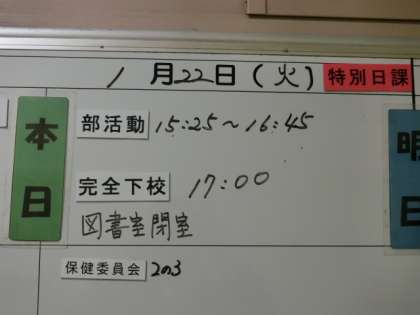 1月22日(火) 特別日課
本日
部活動 15:25~16:45
完全下校 17:00
図書室閉室
保健委員会 2の3
明日